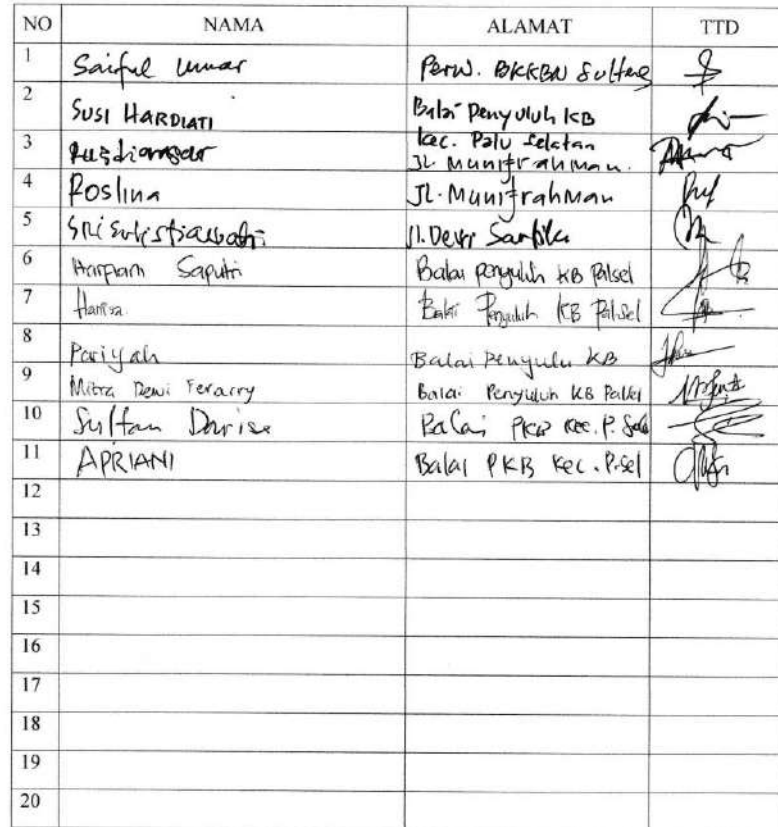 NO NAMA ALAMAT TTD
1 Saiful Umar Perw. BKKBN Sulteng
2 SUSI HARDIATI Balai Penyuluh KB
kec. Palu Selatan
3 Jl. Munifrahman.
4 Roslina Jl. Munifrahman
5 Sri Sulistiawati Jl. Dewi Sartika
6 Saputri Balai penyuluh KB Palsel
7 Hanisa. Balai Penyuluh KB Palsel
8 Pariyah Balai Penyulu KB
9 Mitra Dewi Ferarry Balai Penyuluh KB Palsel
10 Sultan Darise Balai PKB Kec. P. Sel
11 APRIANI Balai PKB Kec. P.Sel
12
13
14
15
16
17
18
19
20